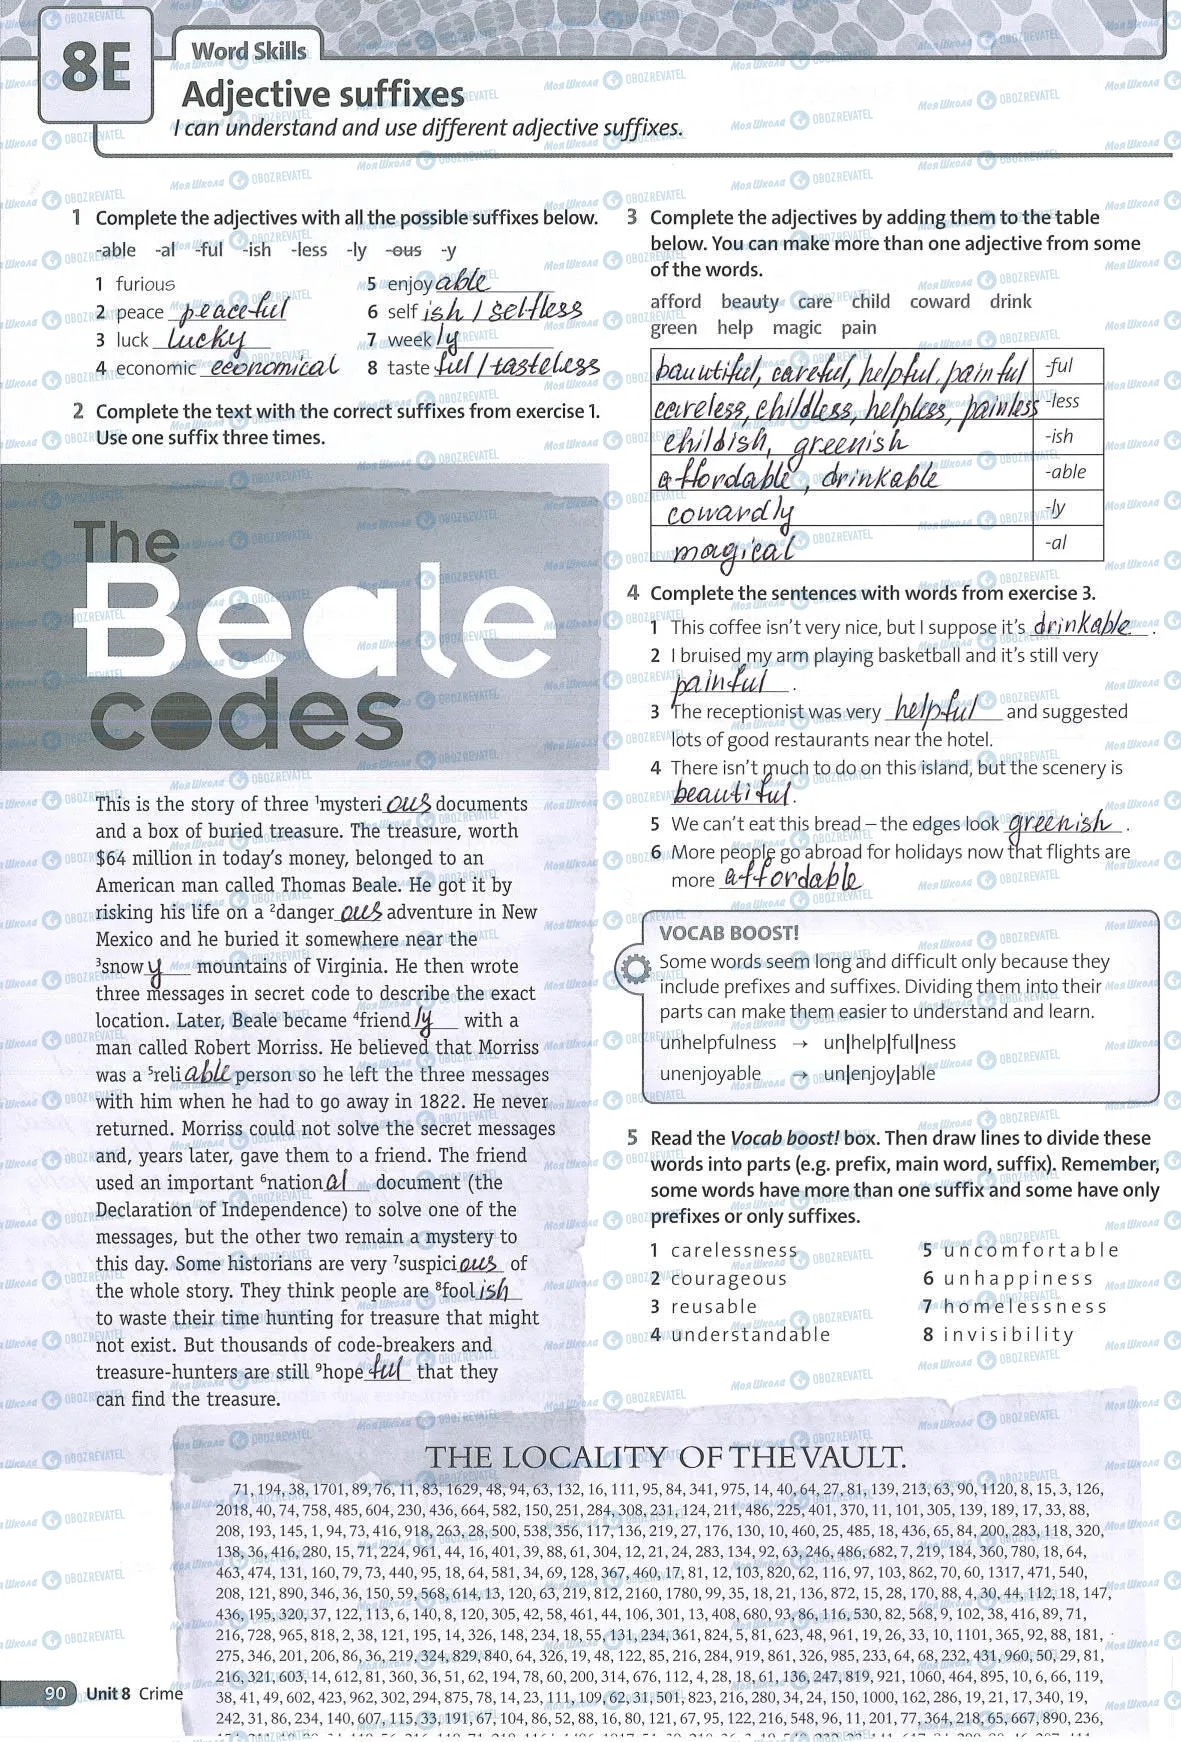 8E
Word Skills
Adjective suffixes
I can understand and use different adjective suffixes.
1 Complete the adjectives with all the possible suffixes below.
-able -al -ful -ish -less -ly -ous -y
1 furious
2 peace peaceful
3 luck lucky
4 economic economical
5 enjoy able
6 self ish / selfless
7 week ly
8 taste ful / tasteless
2 Complete the text with the correct suffixes from exercise 1.
Use one suffix three times.
The
Beale
codes
This is the story of three ¹mysteri ous documents
and a box of buried treasure. The treasure, worth
$64 million in today's money, belonged to an
American man called Thomas Beale. He got it by
risking his life on a ²danger ous adventure in New
Mexico and he buried it somewhere near the
³snow y mountains of Virginia. He then wrote
three messages in secret code to describe the exact
location. Later, Beale became ⁴friend ly with a
man called Robert Morriss. He believed that Morriss
was a ⁵reli able person so he left the three messages
with him when he had to go away in 1822. He never
returned. Morriss could not solve the secret messages
and, years later, gave them to a friend. The friend
used an important ⁶nation al document (the
Declaration of Independence) to solve one of the
messages, but the other two remain a mystery to
this day. Some historians are very ⁷suspici ous of
the whole story. They think people are ⁸fool ish
to waste their time hunting for treasure that might
not exist. But thousands of code-breakers and
treasure-hunters are still ⁹hope ful that they
can find the treasure.
3 Complete the adjectives by adding them to the table
below. You can make more than one adjective from some
of the words.
afford beauty care child coward drink
green help magic pain
bauutiful, careful, helpful, painful -ful
careless, childless, helpless, painless -less
childish, greenish -ish
affordable, drinkable -able
cowardly -ly
magical -al
4 Complete the sentences with words from exercise 3.
1 This coffee isn't very nice, but I suppose it's drinkable.
2 I bruised my arm playing basketball and it's still very
painful.
3 The receptionist was very helpful and suggested
lots of good restaurants near the hotel.
4 There isn't much to do on this island, but the scenery is
beautiful.
5 We can't eat this bread – the edges look greenish.
6 More people go abroad for holidays now that flights are
more affordable
VOCAB BOOST!
Some words seem long and difficult only because they
include prefixes and suffixes. Dividing them into their
parts can make them easier to understand and learn.
unhelpfulness → un|help|ful|ness
unenjoyable → un|enjoy|able
5 Read the Vocab boost! box. Then draw lines to divide these
words into parts (e.g. prefix, main word, suffix). Remember,
some words have more than one suffix and some have only
prefixes or only suffixes.
1 carelessness
2 courageous
3 reusable
4 understandable
5 uncomfortable
6 unhappiness
7 homelessness
8 invisibility
THE LOCALITY OF THE VAULT.
71, 194, 38, 1701, 89, 76, 11, 83, 1629, 48, 94, 63, 132, 16, 111, 95, 84, 341, 975, 14, 40, 64, 27, 81, 139, 213, 63, 90, 1120, 8, 15, 3, 126,
2018, 40, 74, 758, 485, 604, 230, 436, 664, 582, 150, 251, 284, 308, 231, 124, 211, 486, 225, 401, 370, 11, 101, 305, 139, 189, 17, 33, 88,
208, 193, 145, 1, 94, 73, 416, 918, 263, 28, 500, 538, 356, 117, 136, 219, 27, 176, 130, 10, 460, 25, 485, 18, 436, 65, 84, 200, 283, 118, 320,
138, 36, 416, 280, 15, 71, 224, 961, 44, 16, 401, 39, 88, 61, 304, 12, 21, 24, 283, 134, 92, 63, 246, 486, 682, 7, 219, 184, 360, 780, 18, 64,
463, 474, 131, 160, 79, 73, 440, 95, 18, 64, 581, 34, 69, 128, 367, 460, 17, 81, 12, 103, 820, 62, 116, 97, 103, 862, 70, 60, 1317, 471, 540,
208, 121, 890, 346, 36, 150, 59, 568, 614, 13, 120, 63, 219, 812, 2160, 1780, 99, 35, 18, 21, 136, 872, 15, 28, 170, 88, 4, 30, 44, 112, 18, 147,
436, 195, 320, 37, 122, 113, 6, 140, 8, 120, 305, 42, 58, 461, 44, 106, 301, 13, 408, 680, 93, 86, 116, 530, 82, 568, 9, 102, 38, 416, 89, 71,
216, 728, 965, 818, 2, 38, 121, 195, 14, 326, 148, 234, 18, 55, 131, 234, 361, 824, 5, 81, 623, 48, 961, 19, 26, 33, 10, 1101, 365, 92, 88, 181,
275, 346, 201, 206, 86, 36, 219, 324, 829, 840, 64, 326, 19, 48, 122, 85, 216, 284, 919, 861, 326, 985, 233, 64, 68, 232, 431, 960, 50, 29, 81,
216, 321, 603, 14, 612, 81, 360, 36, 51, 62, 194, 78, 60, 200, 314, 676, 112, 4, 28, 18, 61, 136, 247, 819, 921, 1060, 464, 895, 10, 6, 66, 119,
38, 41, 49, 602, 423, 962, 302, 294, 875, 78, 14, 23, 111, 109, 62, 31, 501, 823, 216, 280, 34, 24, 150, 1000, 162, 286, 19, 21, 17, 340, 19,
242, 31, 86, 234, 140, 607, 115, 33, 191, 67, 104, 86, 52, 88, 16, 80, 121, 67, 95, 122, 216, 548, 96, 11, 201, 77, 364, 218, 65, 667, 890, 236,
90 Unit 8 Crime
Моя Школа OBOZREVATEL